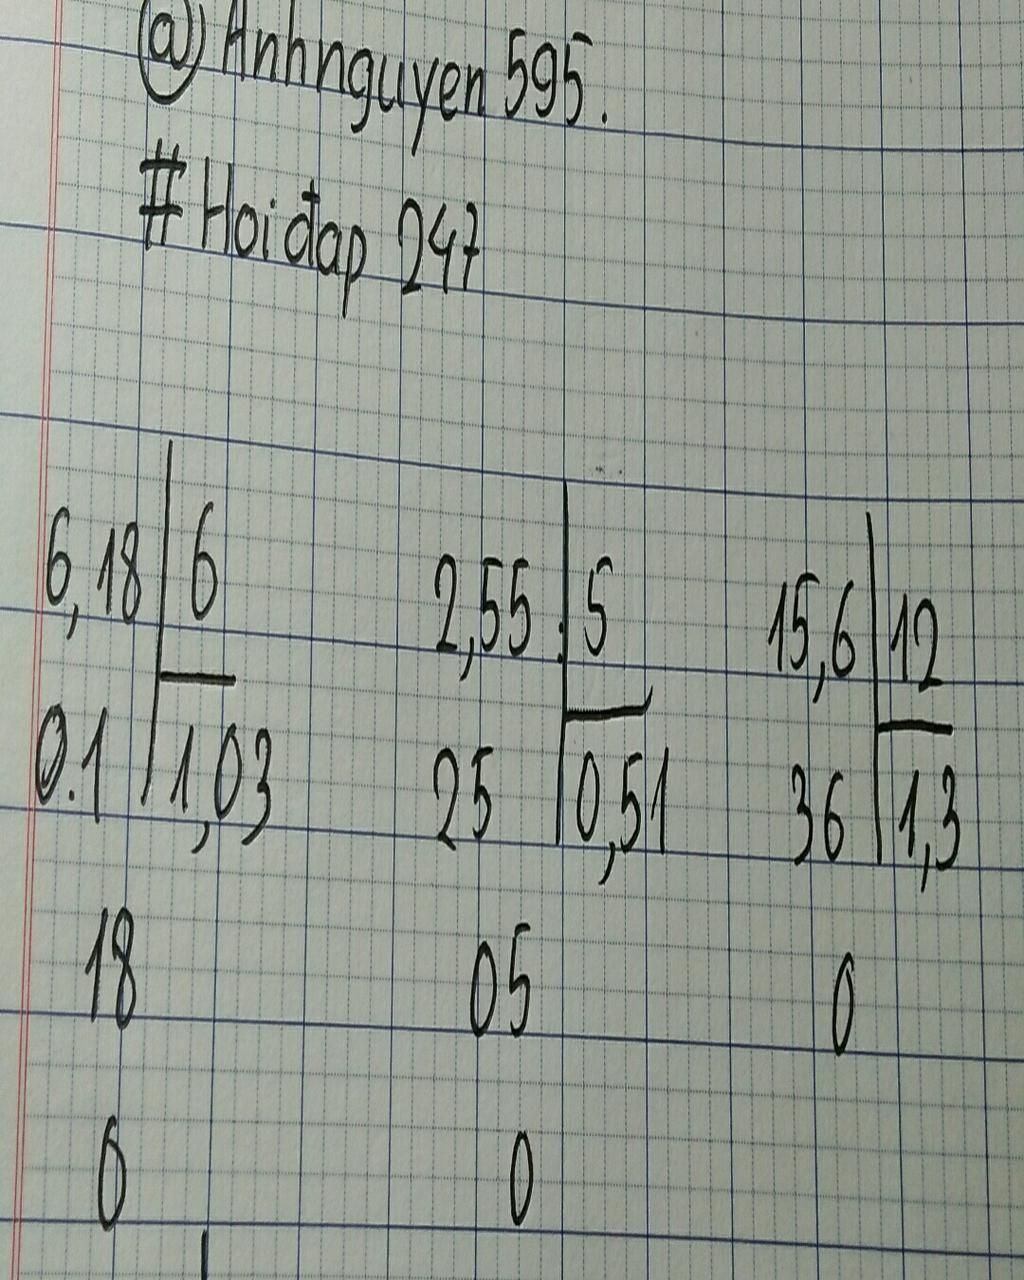 @ Anhnguyen 595.
# Hoidap 247
6,18 6 2,55 5 15,6 12
0.1 1,03 25 0,51 36 1,3
18 05 0
0 0